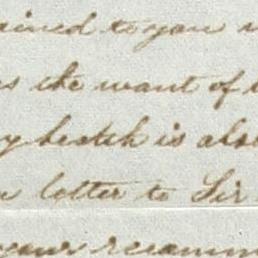 ained to you
s the want of
y health is also
letter to Sir
your recomm